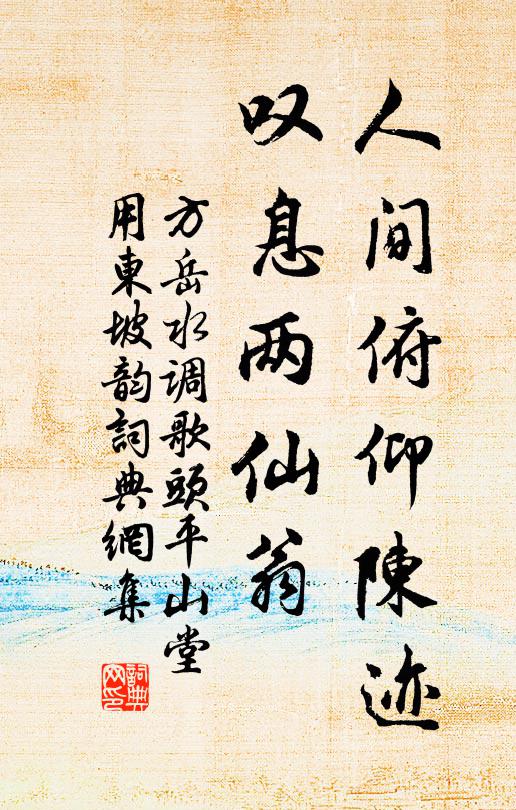 人间俯仰陳迹
叹息两仙翁
方岳水调歌頭平山堂
用東坡韵詞典網集
詞典
网印